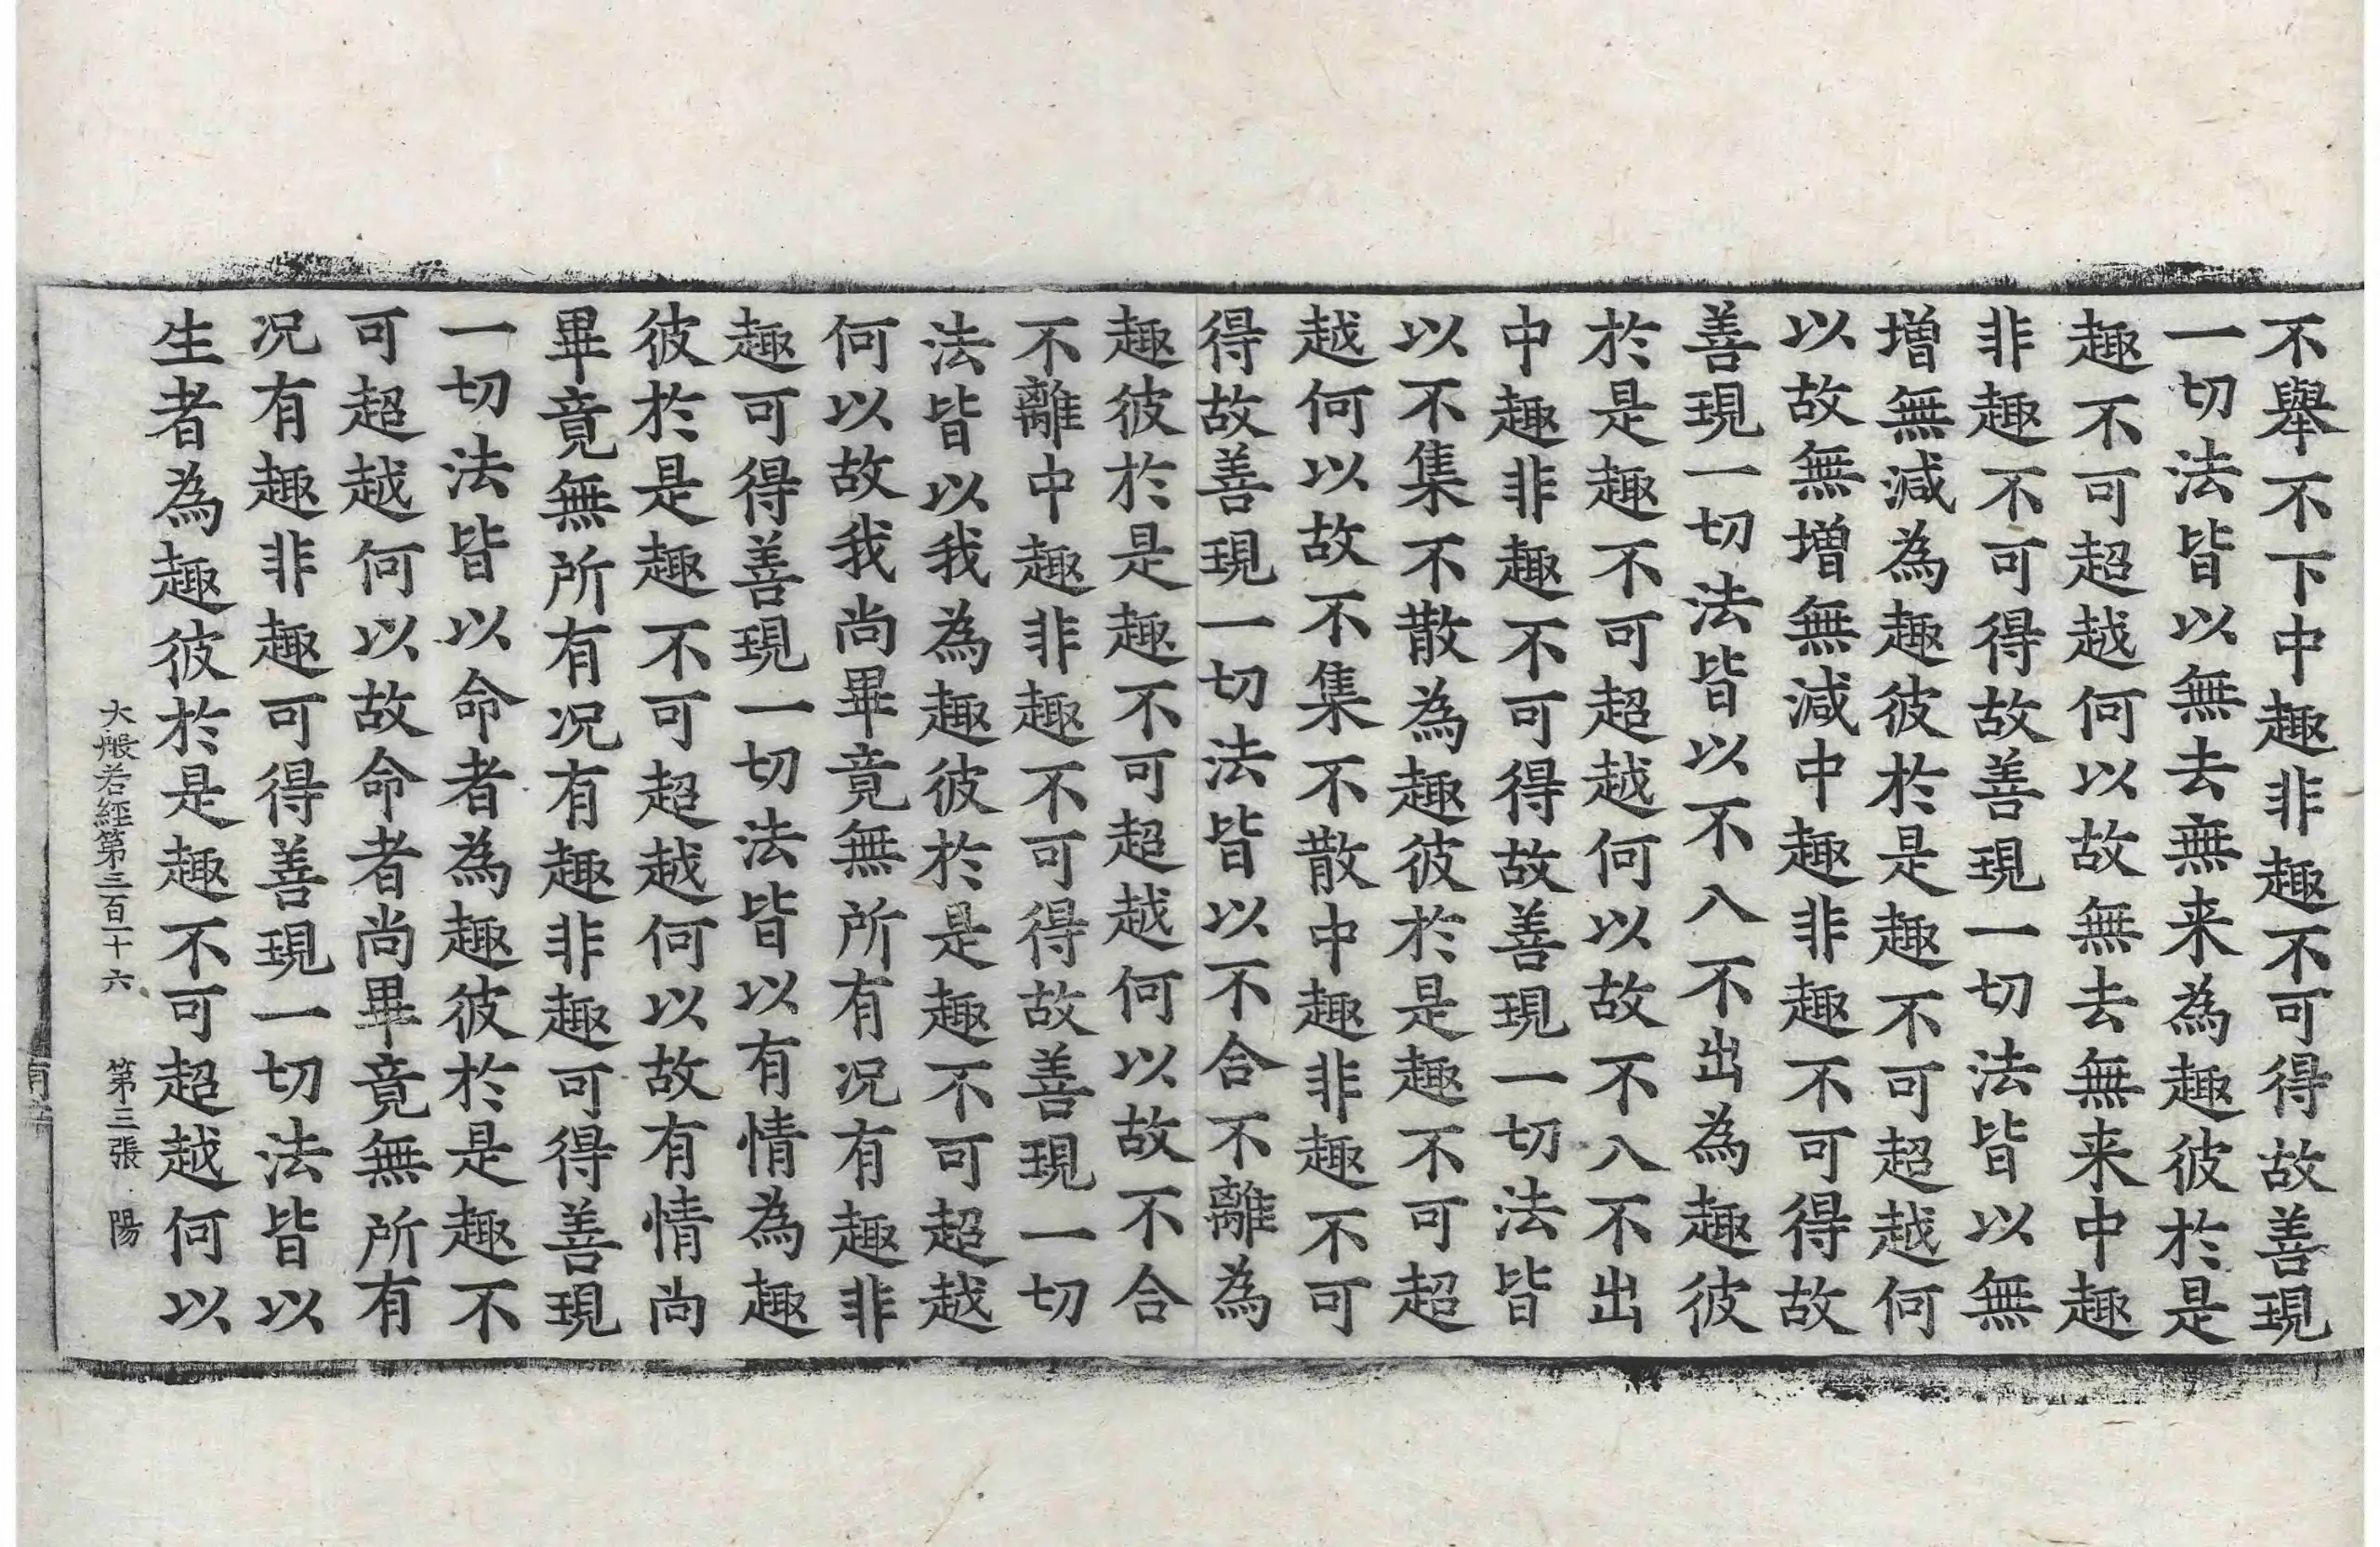 不舉不下中趣非趣不可得故善現
一切法皆以無去無来為趣彼於是
趣不可超越何以故無去無来中趣
非趣不可得故善現一切法皆以無
增無減為趣彼於是趣不可超越何
以故無增無減中趣非趣不可得故
善現一切法皆以不入不出為趣彼
於是趣不可超越何以故不入不出
中趣非趣不可得故善現一切法皆
以不集不散為趣彼於是趣不可超
越何以故不集不散中趣非趣不可
得故善現一切法皆以不合不離為
趣彼於是趣不可超越何以故不合
不離中趣非趣不可得故善現一切
法皆以我為趣彼於是趣不可超越
何以故我尚畢竟無所有况有趣非
趣可得善現一切法皆以有情為趣
彼於是趣不可超越何以故有情尚
畢竟無所有况有趣非趣可得善現
一切法皆以命者為趣彼於是趣不
可超越何以故命者尚畢竟無所有
况有趣非趣可得善現一切法皆以
生者為趣彼於是趣不可超越何以
大般若經第三百一十六 第三張 陽